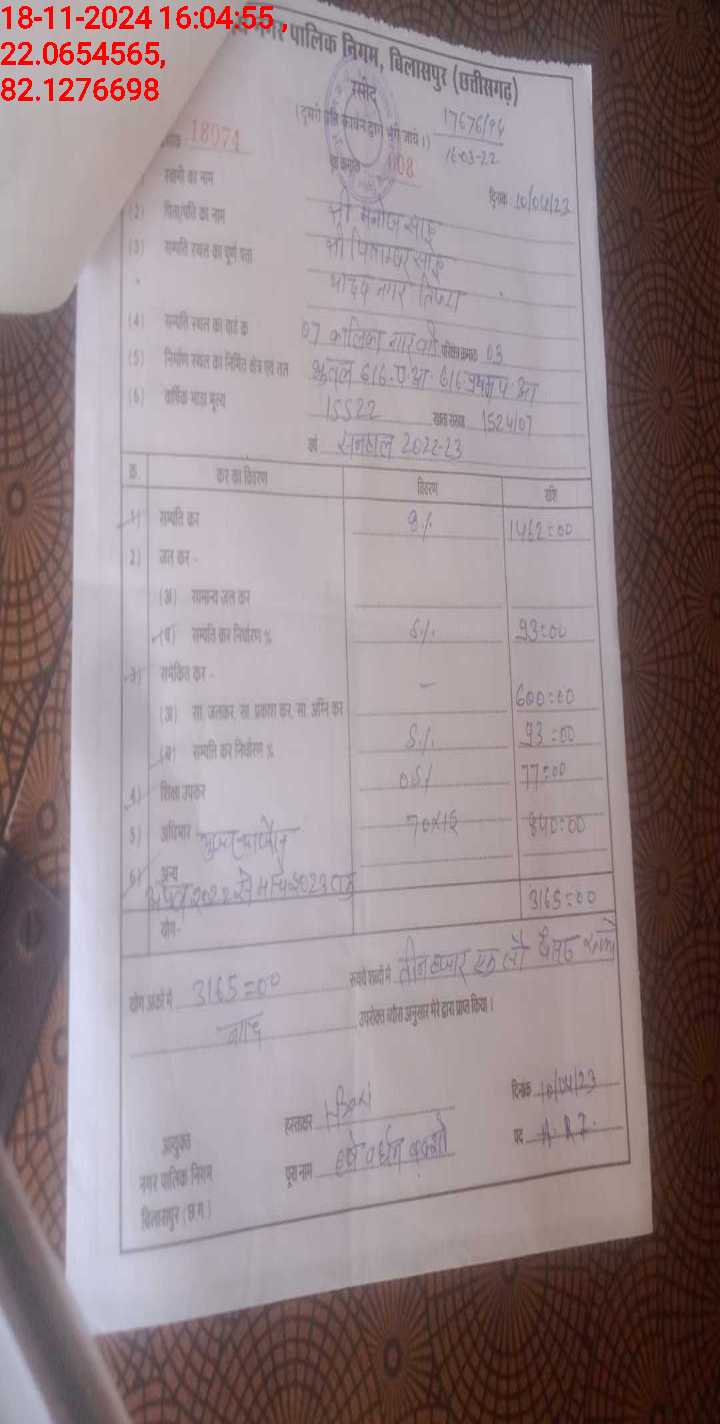 18-11-2024 16:04:55,
22.0654565,
82.1276698
नगर पालिक निगम, बिलासपुर (छत्तीसगढ़)
रसीद
17676/94
16-03-22
18974
008
दिनांक 10/04/23
स्वामी का नाम श्री मनोज साहू
(2) पिता/पति का नाम श्री पिताम्बर साहू
(3) सम्पति स्थल का पूर्ण पता यादव नगर तिफरा
(4) सम्पति स्थल का वार्ड क्र 07 कालिका नगर 03
(5) निर्माण स्थल का निर्मित क्षेत्र एवं तल भूतल 616
(6) वार्षिक भाड़ा मूल्य 15522 1524/07
वर्ष सनहाल 2022-23
क्र. कर का विवरण विवरण राशि
1) सम्पति कर 1462=00
2) जल कर -
(अ) सामान्य जल कर
(ब) सम्पति कर निर्धारण % 5%. 93=00
3) समेकित कर - 600=00
(अ) सा. जलकर, सा. प्रकाश कर, सा. अग्नि कर
(ब) सम्पति कर निर्धारण % 5%. 93=00
4) शिक्षा उपकर 77=00
5) अधिभार 70x12 840=00
6) अन्य
अप्रैल 2022 से मार्च 2023 तक
योग- 3165=00
योग अंकों में 3165=00 रूपये शब्दों में तीन हजार एक सौ पैंसठ रूपये
उपरोक्त ब्यौरा अनुसार मेरे द्वारा प्राप्त किया।
हस्ताक्षर दिनांक 10/04/23
आयुक्त
पूरा नाम हर्ष वर्धन पद A.R.I.
नगर पालिक निगम
बिलासपुर (छ.ग.)